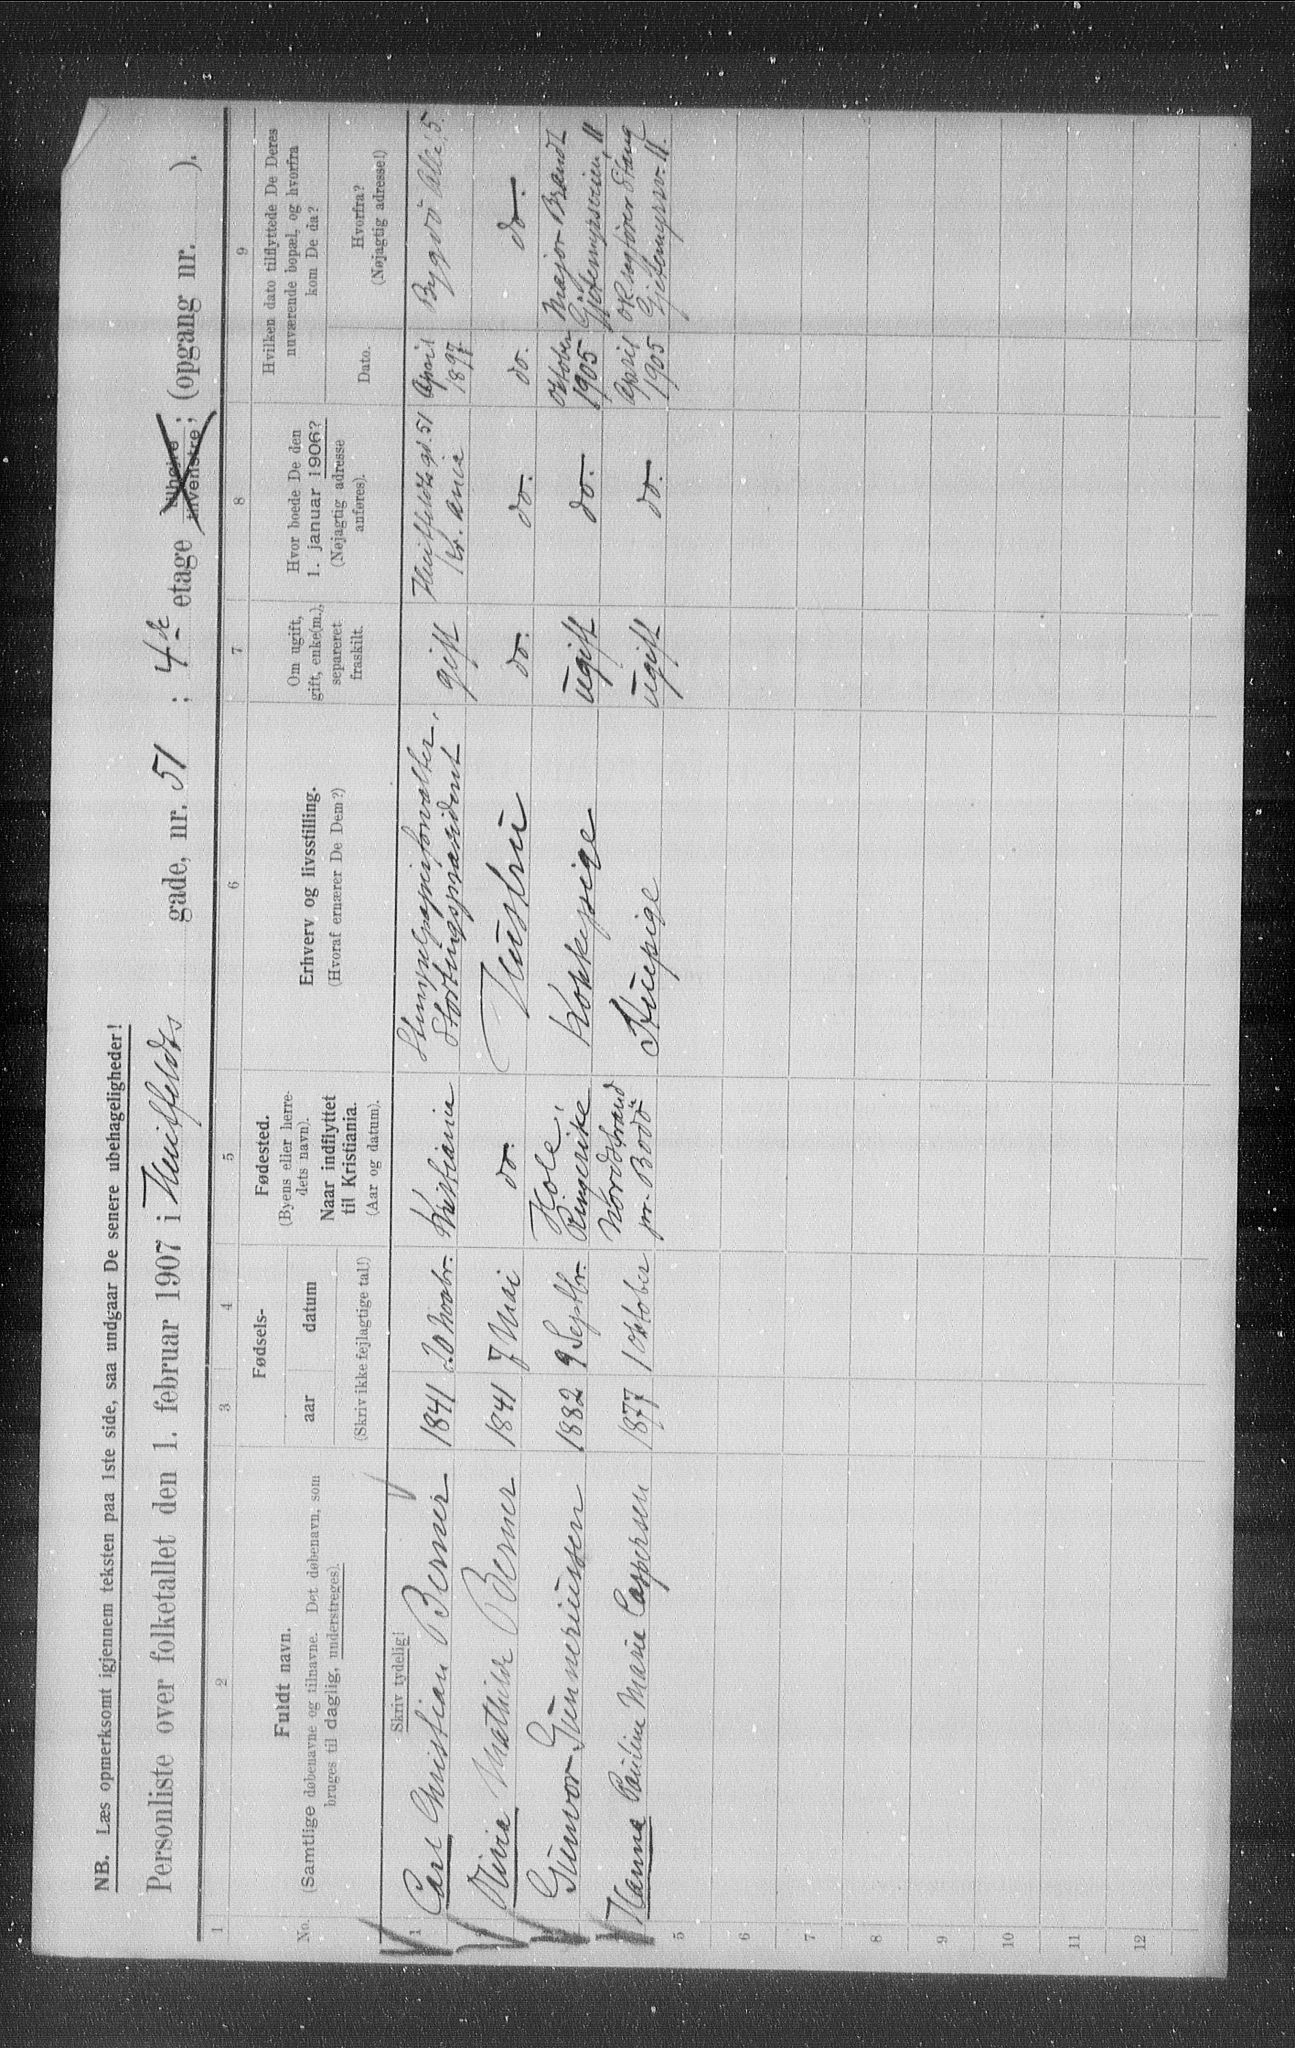 NB. Læs opmerksomt igjennem teksten paa 1ste side, saa undgaar De senere ubehageligheder!
Personliste over folketallet den 1. februar 1907 i Huitfeldts gade, nr. 51 ; 4de etage tilhøire tilvenstre ; (opgang nr. ).
1 2 3 4 5 6 7 8 9
No.
Fuldt navn.
(Samtlige døbenavne og tilnavne. Det døbenavn, som
bruges til daglig, understreges).
Fødsels-
aar datum
(Skriv ikke fejlagtige tal!)
Fødested.
(Byens eller herre-
dets navn).
Naar indflyttet
til Kristiania.
(Aar og datum).
Erhverv og livsstilling.
(Hvoraf ernærer De Dem?)
Om ugift,
gift, enke(m.),
separeret
fraskilt.
Hvor boede De den
1. januar 1906?
(Nøjagtig adresse
anføres).
Hvilken dato tilflyttede De Deres
nuværende bopæl, og hvorfra
kom De da?
Dato.
Hvorfra?
(Nøjagtig adresse!)
Skriv tydelig!
1 Carl Christian Berner 1841 20 Novbr. Kristiania Stempelpapirforvalter, Stortingspræsident gift Huitfeldts gd. 51 Kr. ania April 1897 Bygdö Allé 5.
Olivia Mathilde Berner 1841 7 Mai do. Hustru do. do. do. do.
Gunvor Gunneriussen 1882 9 Septbr. Hole, Ringerike Kokkepige ugift do. Oktober 1905 Major Brandt Gjetemyrsveien 11
Hanna Pauline Marie Caspersen 1877 1 Oktober Nordstrand pr. Bodö Stuepige ugift do. April 1905 Stang Gjetemyrsv. 11.
5
6
7
8
9
10
11
12